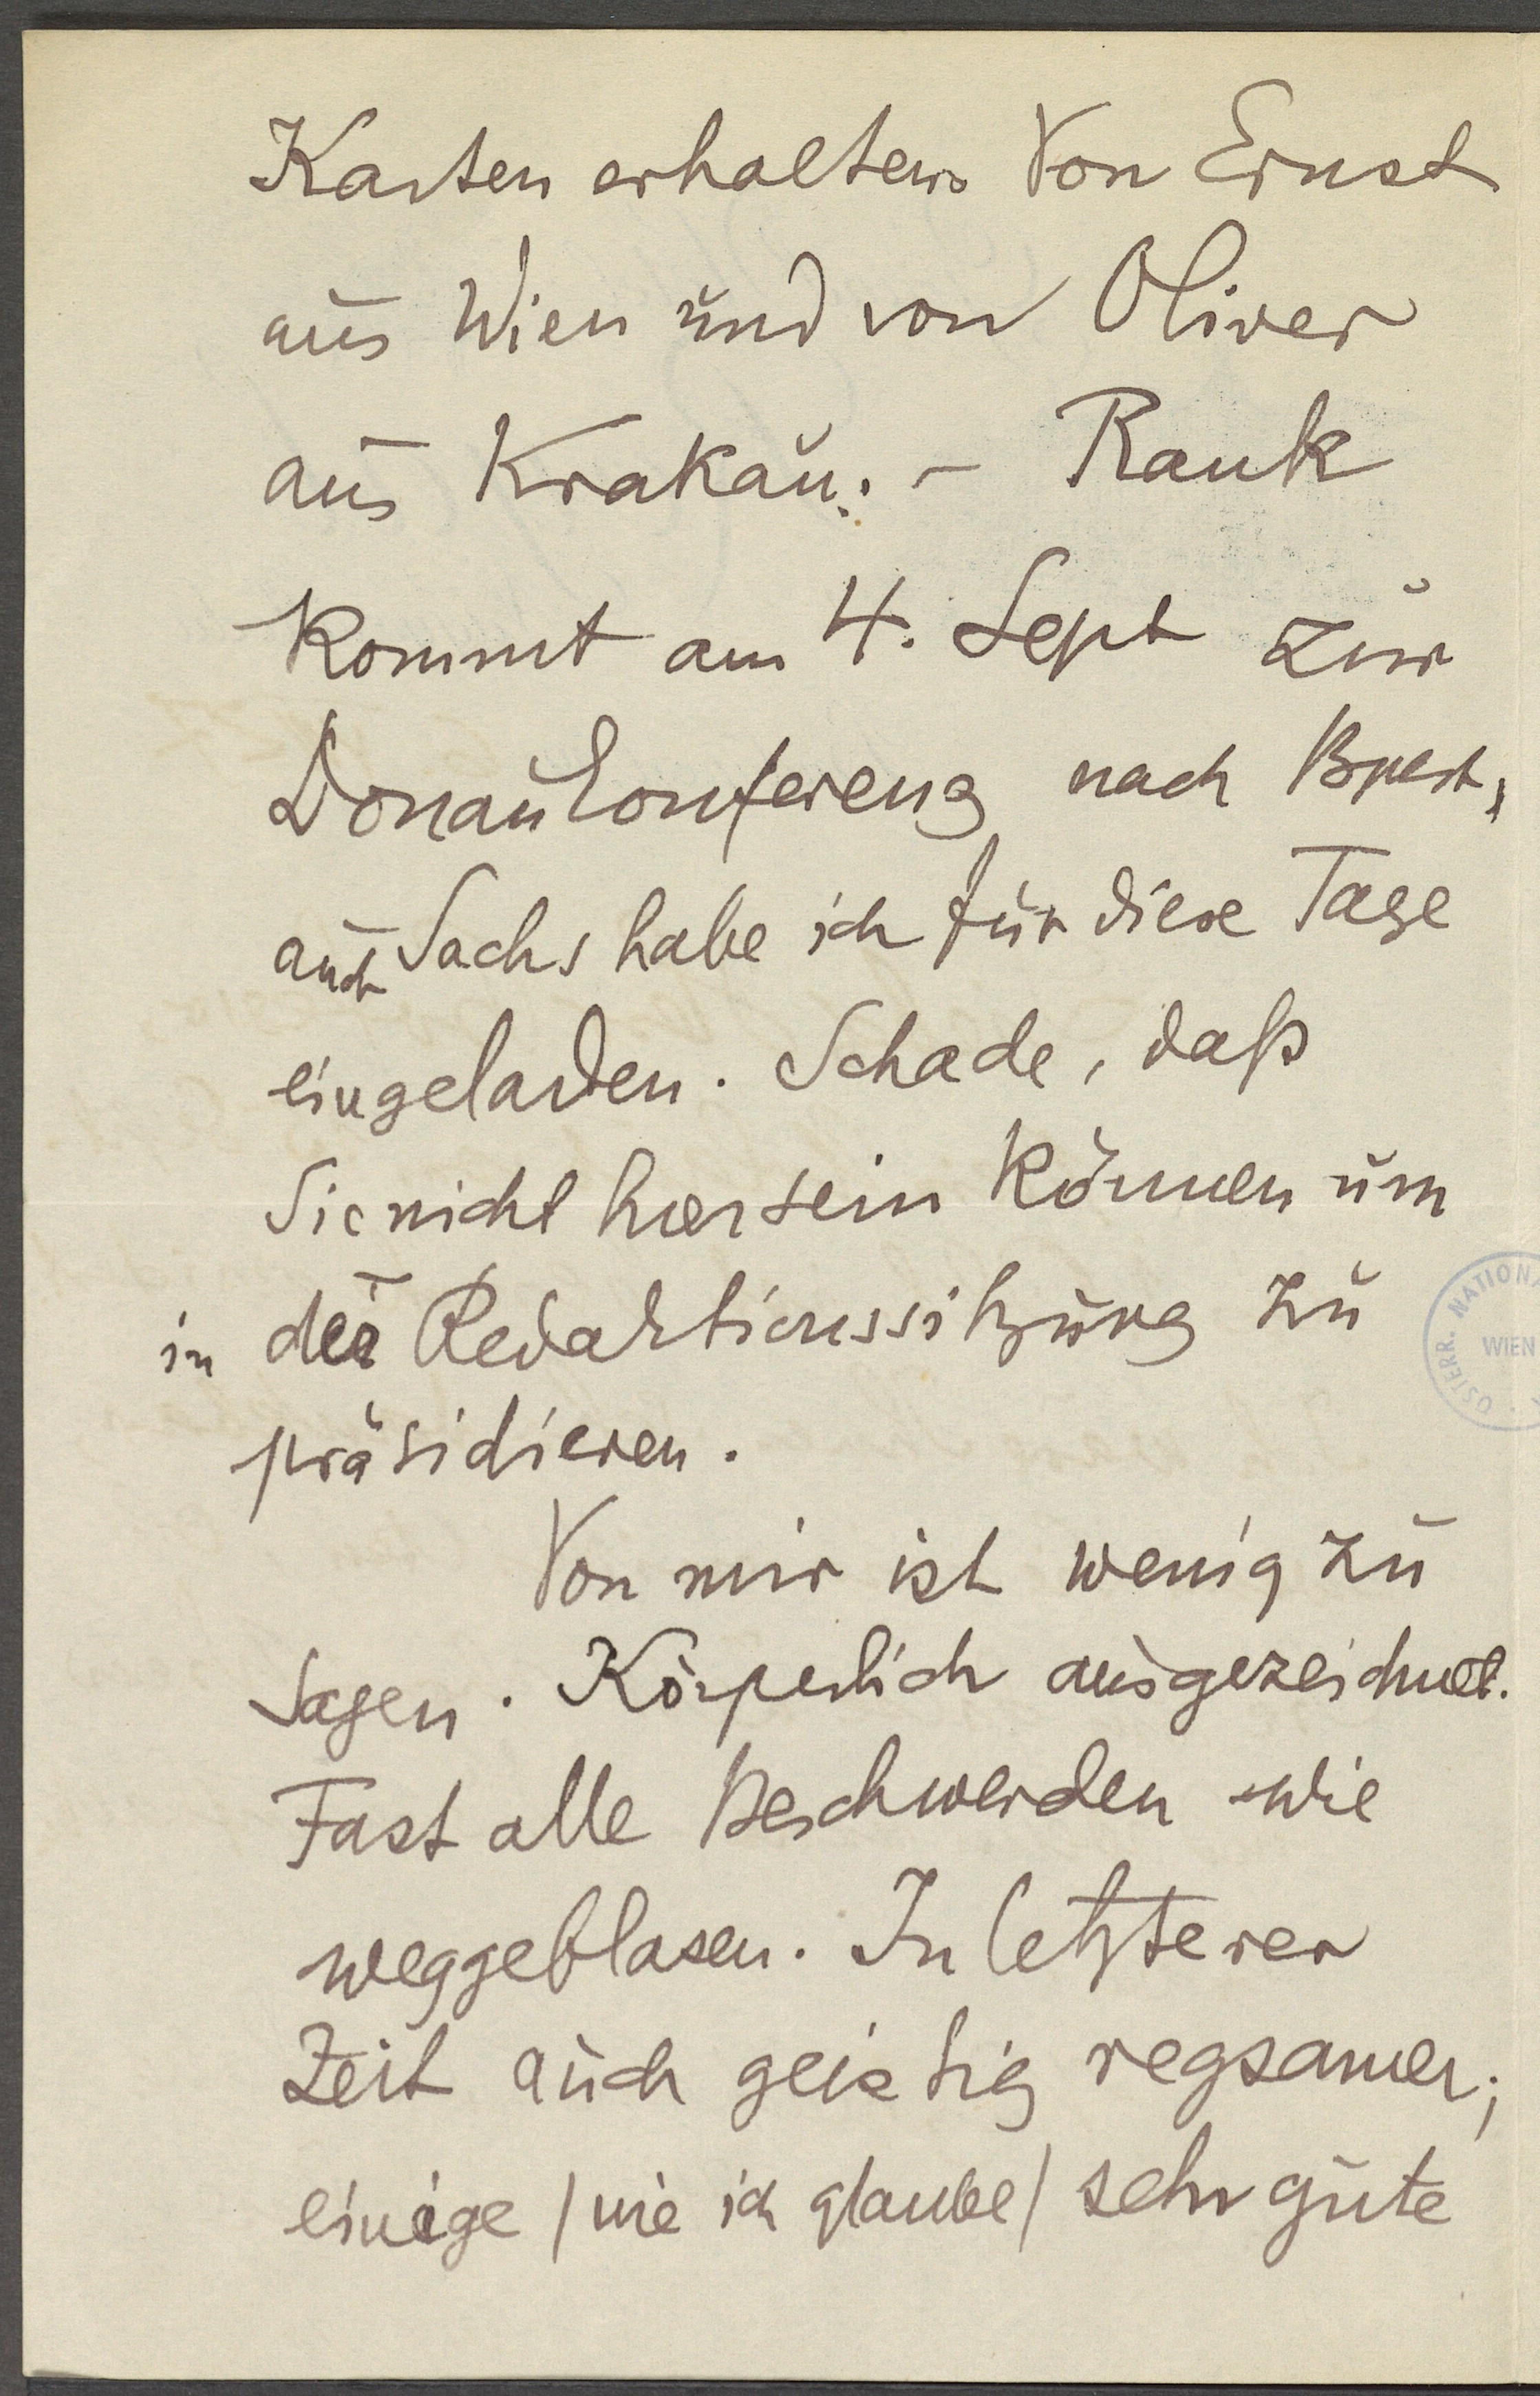 Karten erhalten. Von Ernst
aus Wien und von Oliver
aus Krakau. – Rank
kommt am 4. Sept zur
Donauconferenz nach Bpest,
auch Sachs habe ich für diese Tage
eingeladen. Schade, daß
Sie nicht hier sein können um
in der Redaktionssitzung zu
präsidieren.
Von mir ist wenig zu
sagen. Körperlich ausgezeichnet.
Fast alle Beschwerden wie
weggeblasen. In letzterer
Zeit auch geistig regsamer;
einige / wie ich glaube / sehr gute
ÖSTERR. NATIONA
WIEN